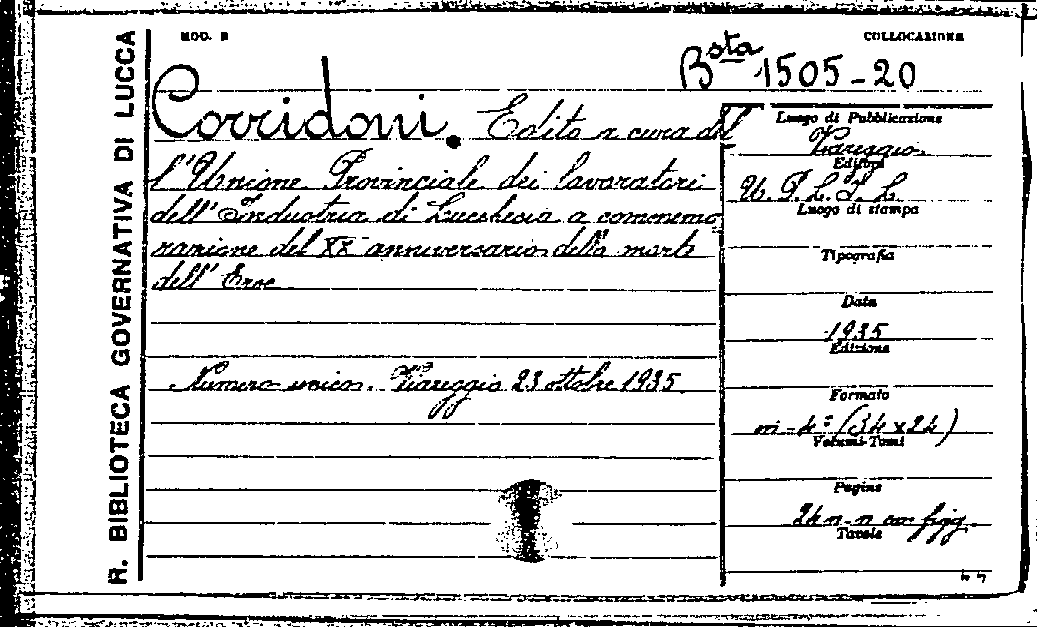 R. BIBLIOTECA GOVERNATIVA DI LUCCA
MOD. B
COLLOCAZIONE
Bsta 1505-20
Corridoni. Edito a cura del
l'Unione Provinciale dei lavoratori
dell'Industria di Lucchesia a commemo
razione del XX anniversario della morte
dell'Eroe
Numero unico. Viareggio 23 ottobre 1935
Luogo di Pubblicazione
Viareggio
Editore
U. P. L. I. L.
Luogo di stampa
Tipografia
Data
1935
Edizione
Formato
in-4° (34x24)
Volumi-Tomi
Pagine
24 n-n con figg.
Tavole